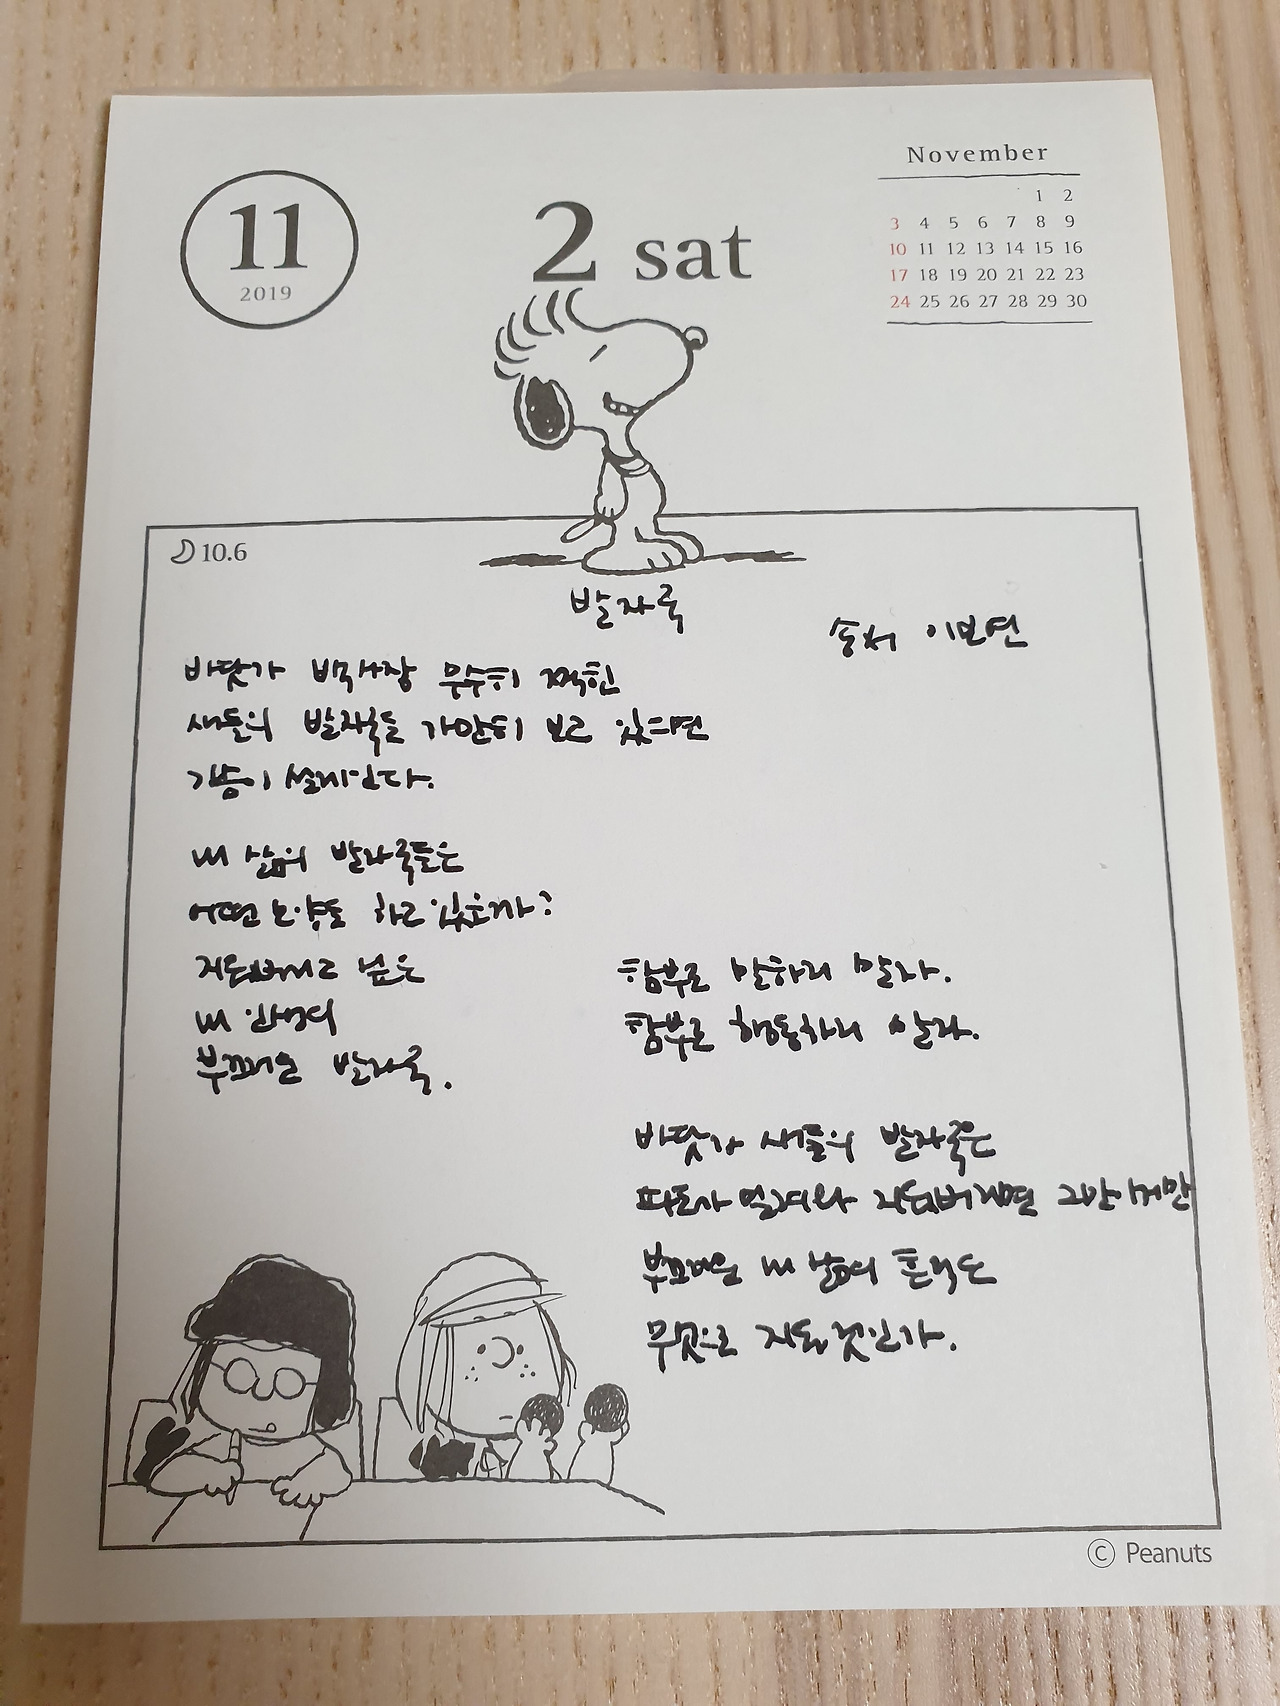 11
2019
2 sat
November
1 2
3 4 5 6 7 8 9
10 11 12 13 14 15 16
17 18 19 20 21 22 23
24 25 26 27 28 29 30
10.6
발자국
송서 이보연
바닷가 백사장 무수히 찍힌
새들의 발자국들 가만히 보고 있으면
가슴이 설레인다.
내 삶의 발자국들은
어떤 모양들 하고 있을까?
지워버리고 싶은
내 인생의
부끄러운 발자국.
함부로 말하지 말자.
함부로 행동하지 말자.
바닷가 새들의 발자국은
파도가 밀려와 지워버리면 그만이지만
부끄러운 내 삶의 흔적은
무엇으로 지울 것인가.
© Peanuts